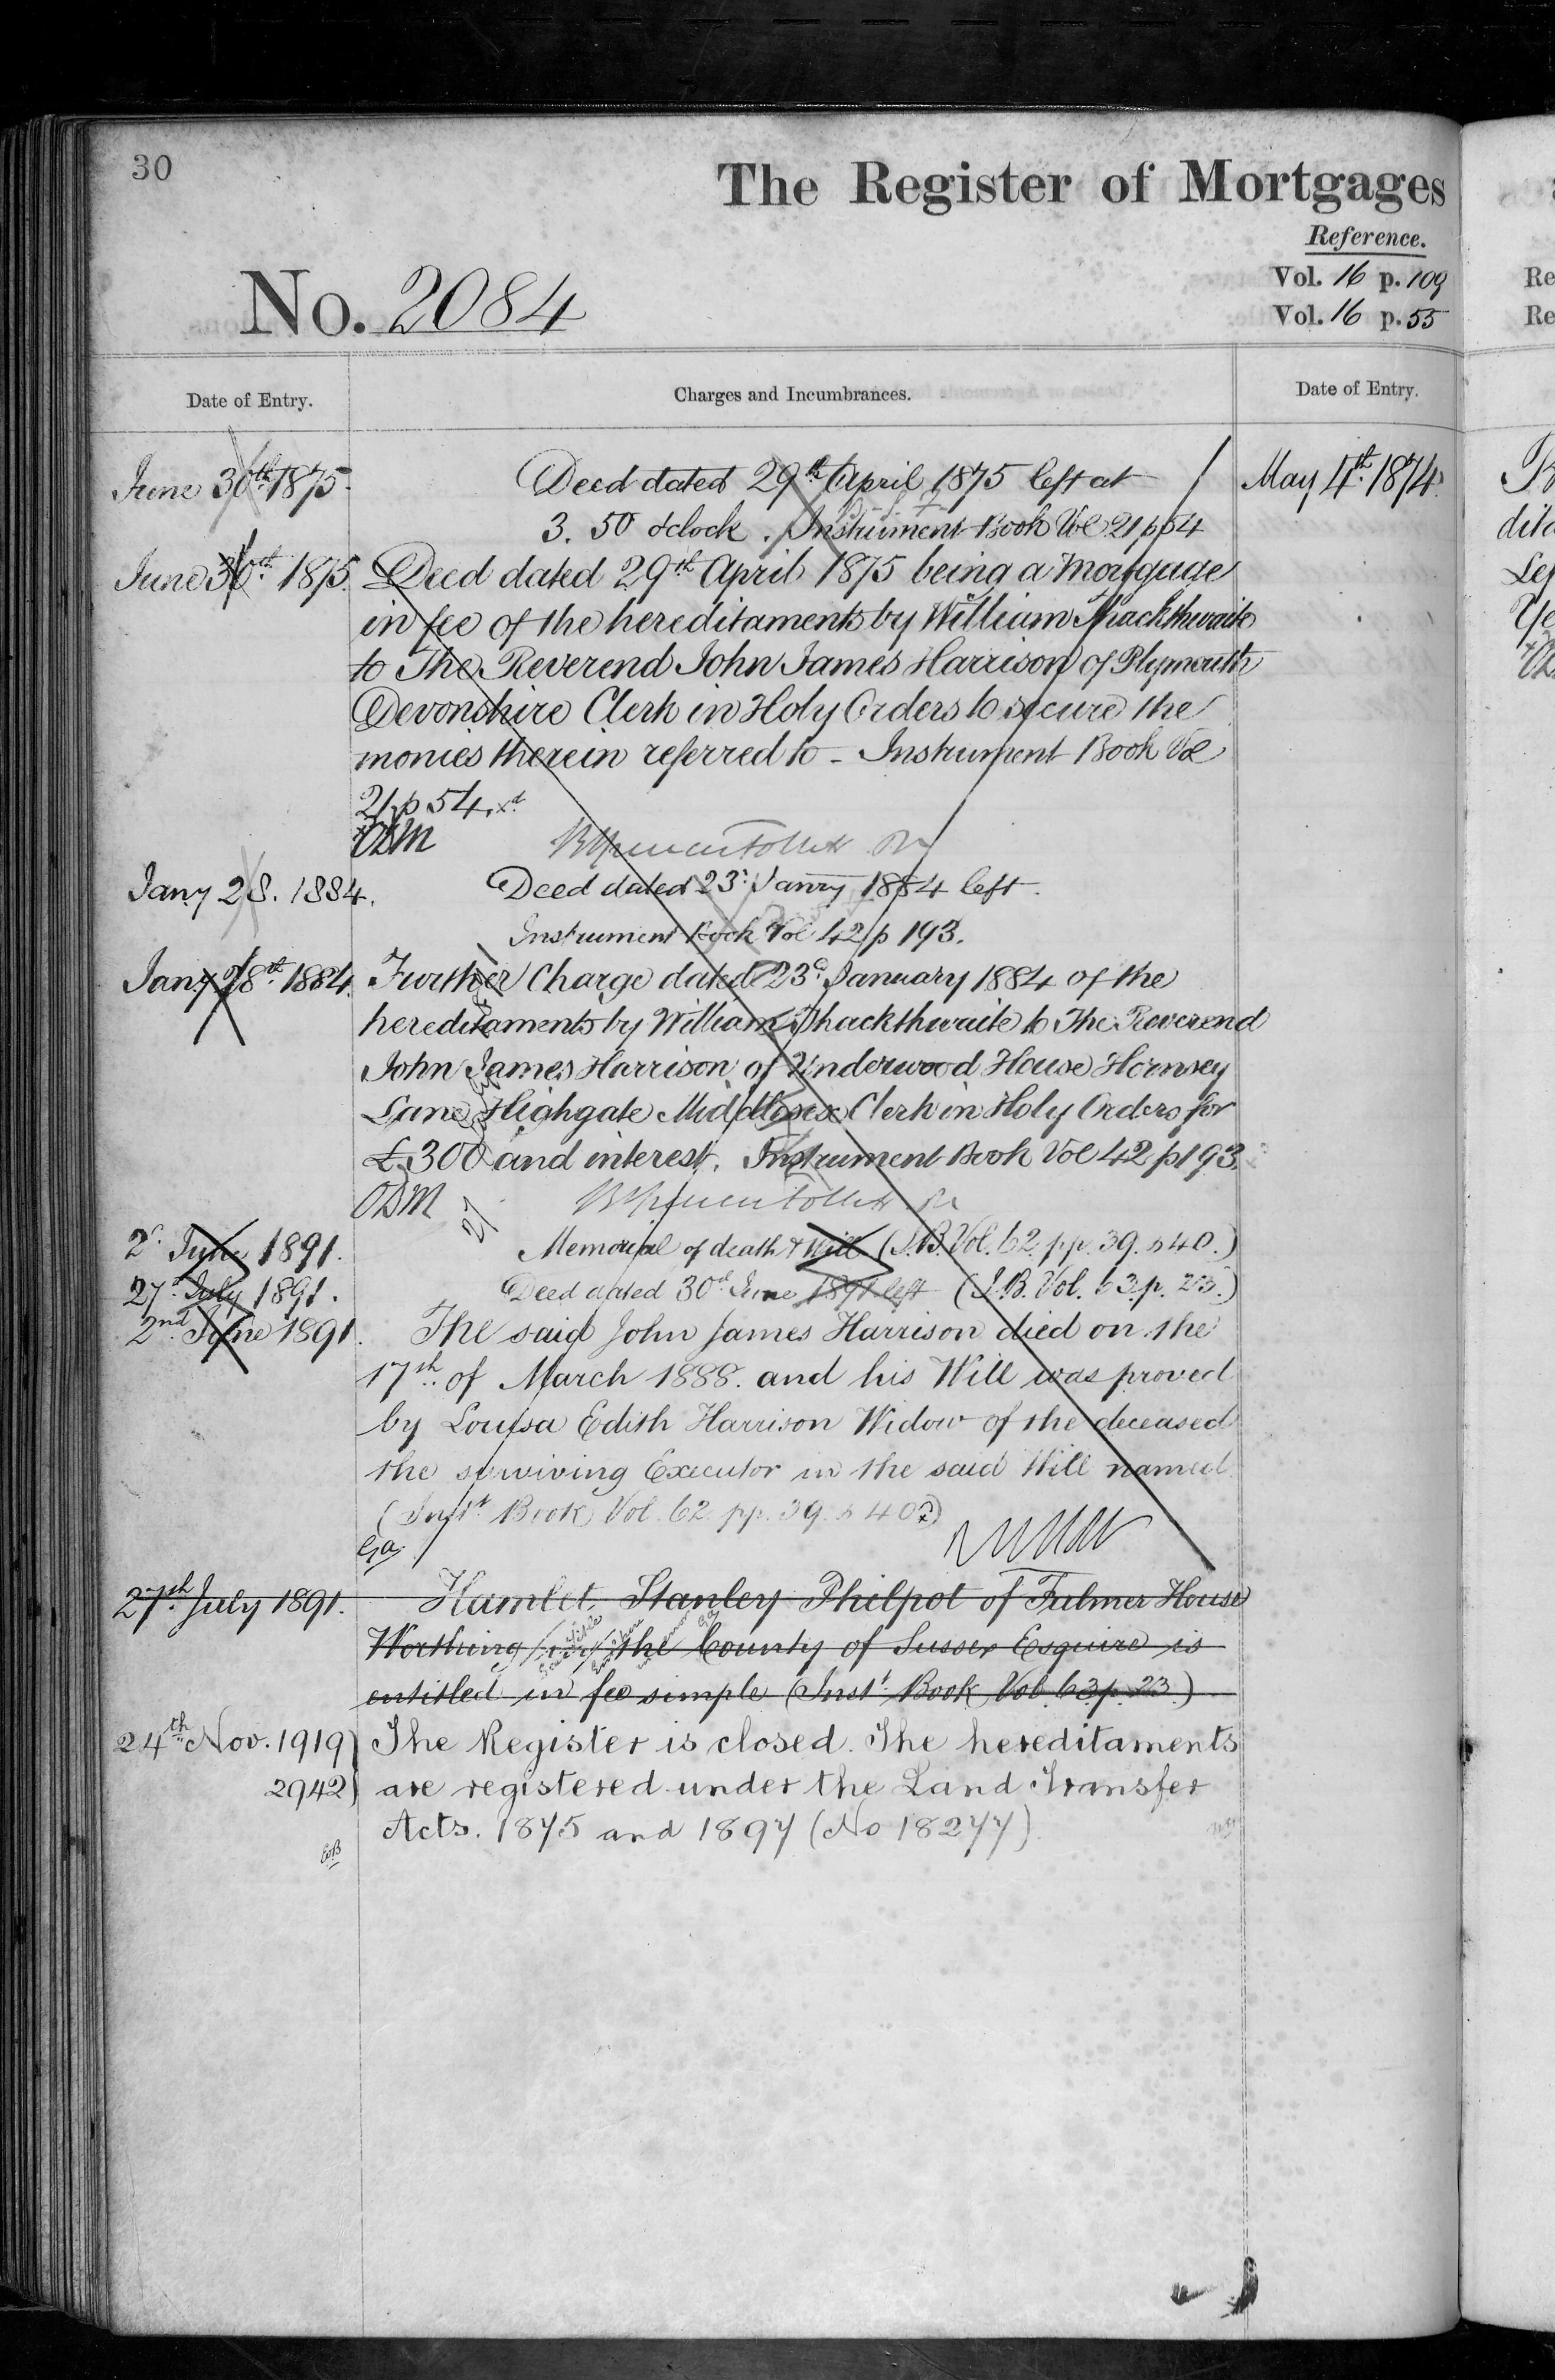 30
The Register of Mortgages
Reference.
Vol. 16 p. 109
No. 2084
Vol. 16 p. 55
Date of Entry.
Charges and Incumbrances.
Date of Entry.
June 30th 1875.
Deed dated 29th April 1875 left at
May 4th. 1874.
3. 50 o'clock. Instrument Book Vol 21 p 54
June 30th. 1875.
Deed dated 29th April 1875 being a Mortgage
in fee of the hereditaments by William Thackthwaite
to The Reverend John James Harrison of Plymouth
Devonshire Clerk in Holy Orders to secure the
monies therein referred to - Instrument Book Vol
21 p 54.
ODM
Jany 28. 1884.
Deed dated 23d Janry 1884 left.
Instrument Book Vol 42 p 193.
Jany 28th 1884.
Further Charge dated 23d January 1884 of the
hereditaments by William Thackthwaite to The Reverend
John James Harrison of Underwood House Hornsey
Lane Highgate Middlesex Clerk in Holy Orders for
£300 and interest. Instrument Book Vol 42 p 193.
ODM
2d June 1891.
Memorial of death & Will (I.B. Vol. 62 pp. 39. & 40.)
27th July 1891.
Deed dated 30th June 1891 left (I.B. Vol. 63. p. 23.)
2nd June 1891.
The said John James Harrison died on the
17th of March 1888. and his Will was proved
by Louisa Edith Harrison Widow of the deceased
the surviving Executor in the said Will named.
(Inst. Book Vol. 62 pp. 39. & 40.)
27th July 1891.
Hamlet Stanley Philpot of Fulmer House
Worthing in the County of Sussex Esquire is
entitled in fee simple (Inst. Book Vol. 63 p. 23.)
24th Nov. 1919
The Register is closed. The hereditaments
2942
are registered under the Land Transfer
Acts. 1875 and 1897 (No 18277).
EB